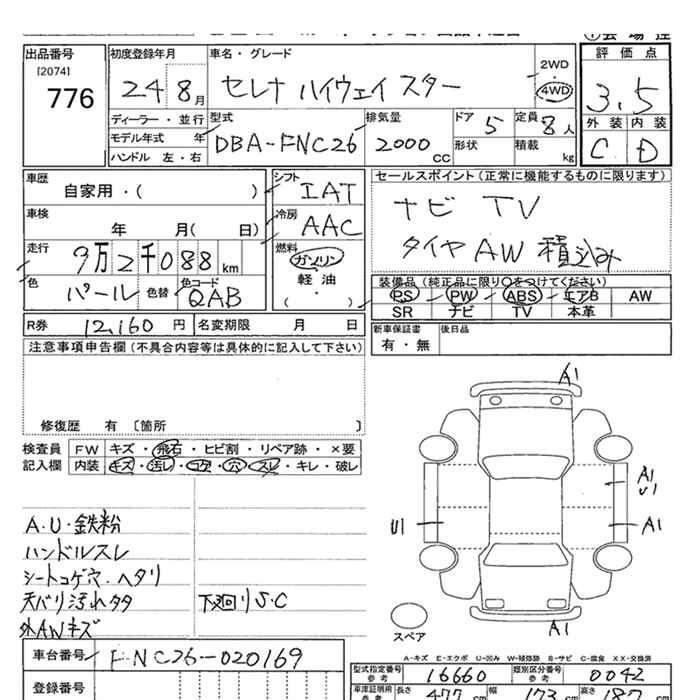 出品番号
[2074]
776
初度登録年月
24 8月
車名・グレード
セレナ ハイウェイ スター
2WD
・
4WD
評価点
3.5
外装 内装
C D
ディーラー・並行
モデル年式 年
ハンドル 左・右
型式
DBA-FNC26
排気量
2000 CC
ドア 5
形状
定員 8人
積載 kg
車歴
自家用・( )
車検
年 月( 日)
走行
9万2千088 km
色
パール 色替
色コード
QAB
シフト
IAT
冷房
AAC
燃料
ガソリン
軽油
( ・ )
セールスポイント(正常に機能するものに限ります)
ナビ TV
タイヤ AW 積込み
装備品(純正品に限り○をつけてください)
PS PW ABS エアB AW
SR ナビ TV 本革
R券 12,160 円 名変期限 月 日
新車保証書
有・無
後日品
注意事項申告欄(不具合内容等は具体的に記入して下さい)
修復歴 有 〔箇所 〕
検査員
記入欄
FW キズ・飛石・ヒビ割・リペア跡・×要
内装 キズ・汚レ・コゲ・穴・スレ・キレ・破レ
A.U・鉄粉
ハンドルスレ
シートコゲ穴.ヘタリ
天バリ汚れタタ
外AWキズ
下廻りS.C
A1
A1
U1
U1
A1
A1
スペア
A-キズ E-エクボ U-凹み W-補修跡 B-サビ C-腐食 XX-交換済
車台番号 FNC26-020169
登録番号
型式指定番号
参考
16660
類別区分番号
参考
0042
車庫証明用
参考
長さ 477 cm 幅 173 cm 高さ 187 cm